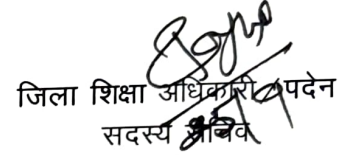 जिला शिक्षा अधिकारी पदेन
सदस्य सचिव